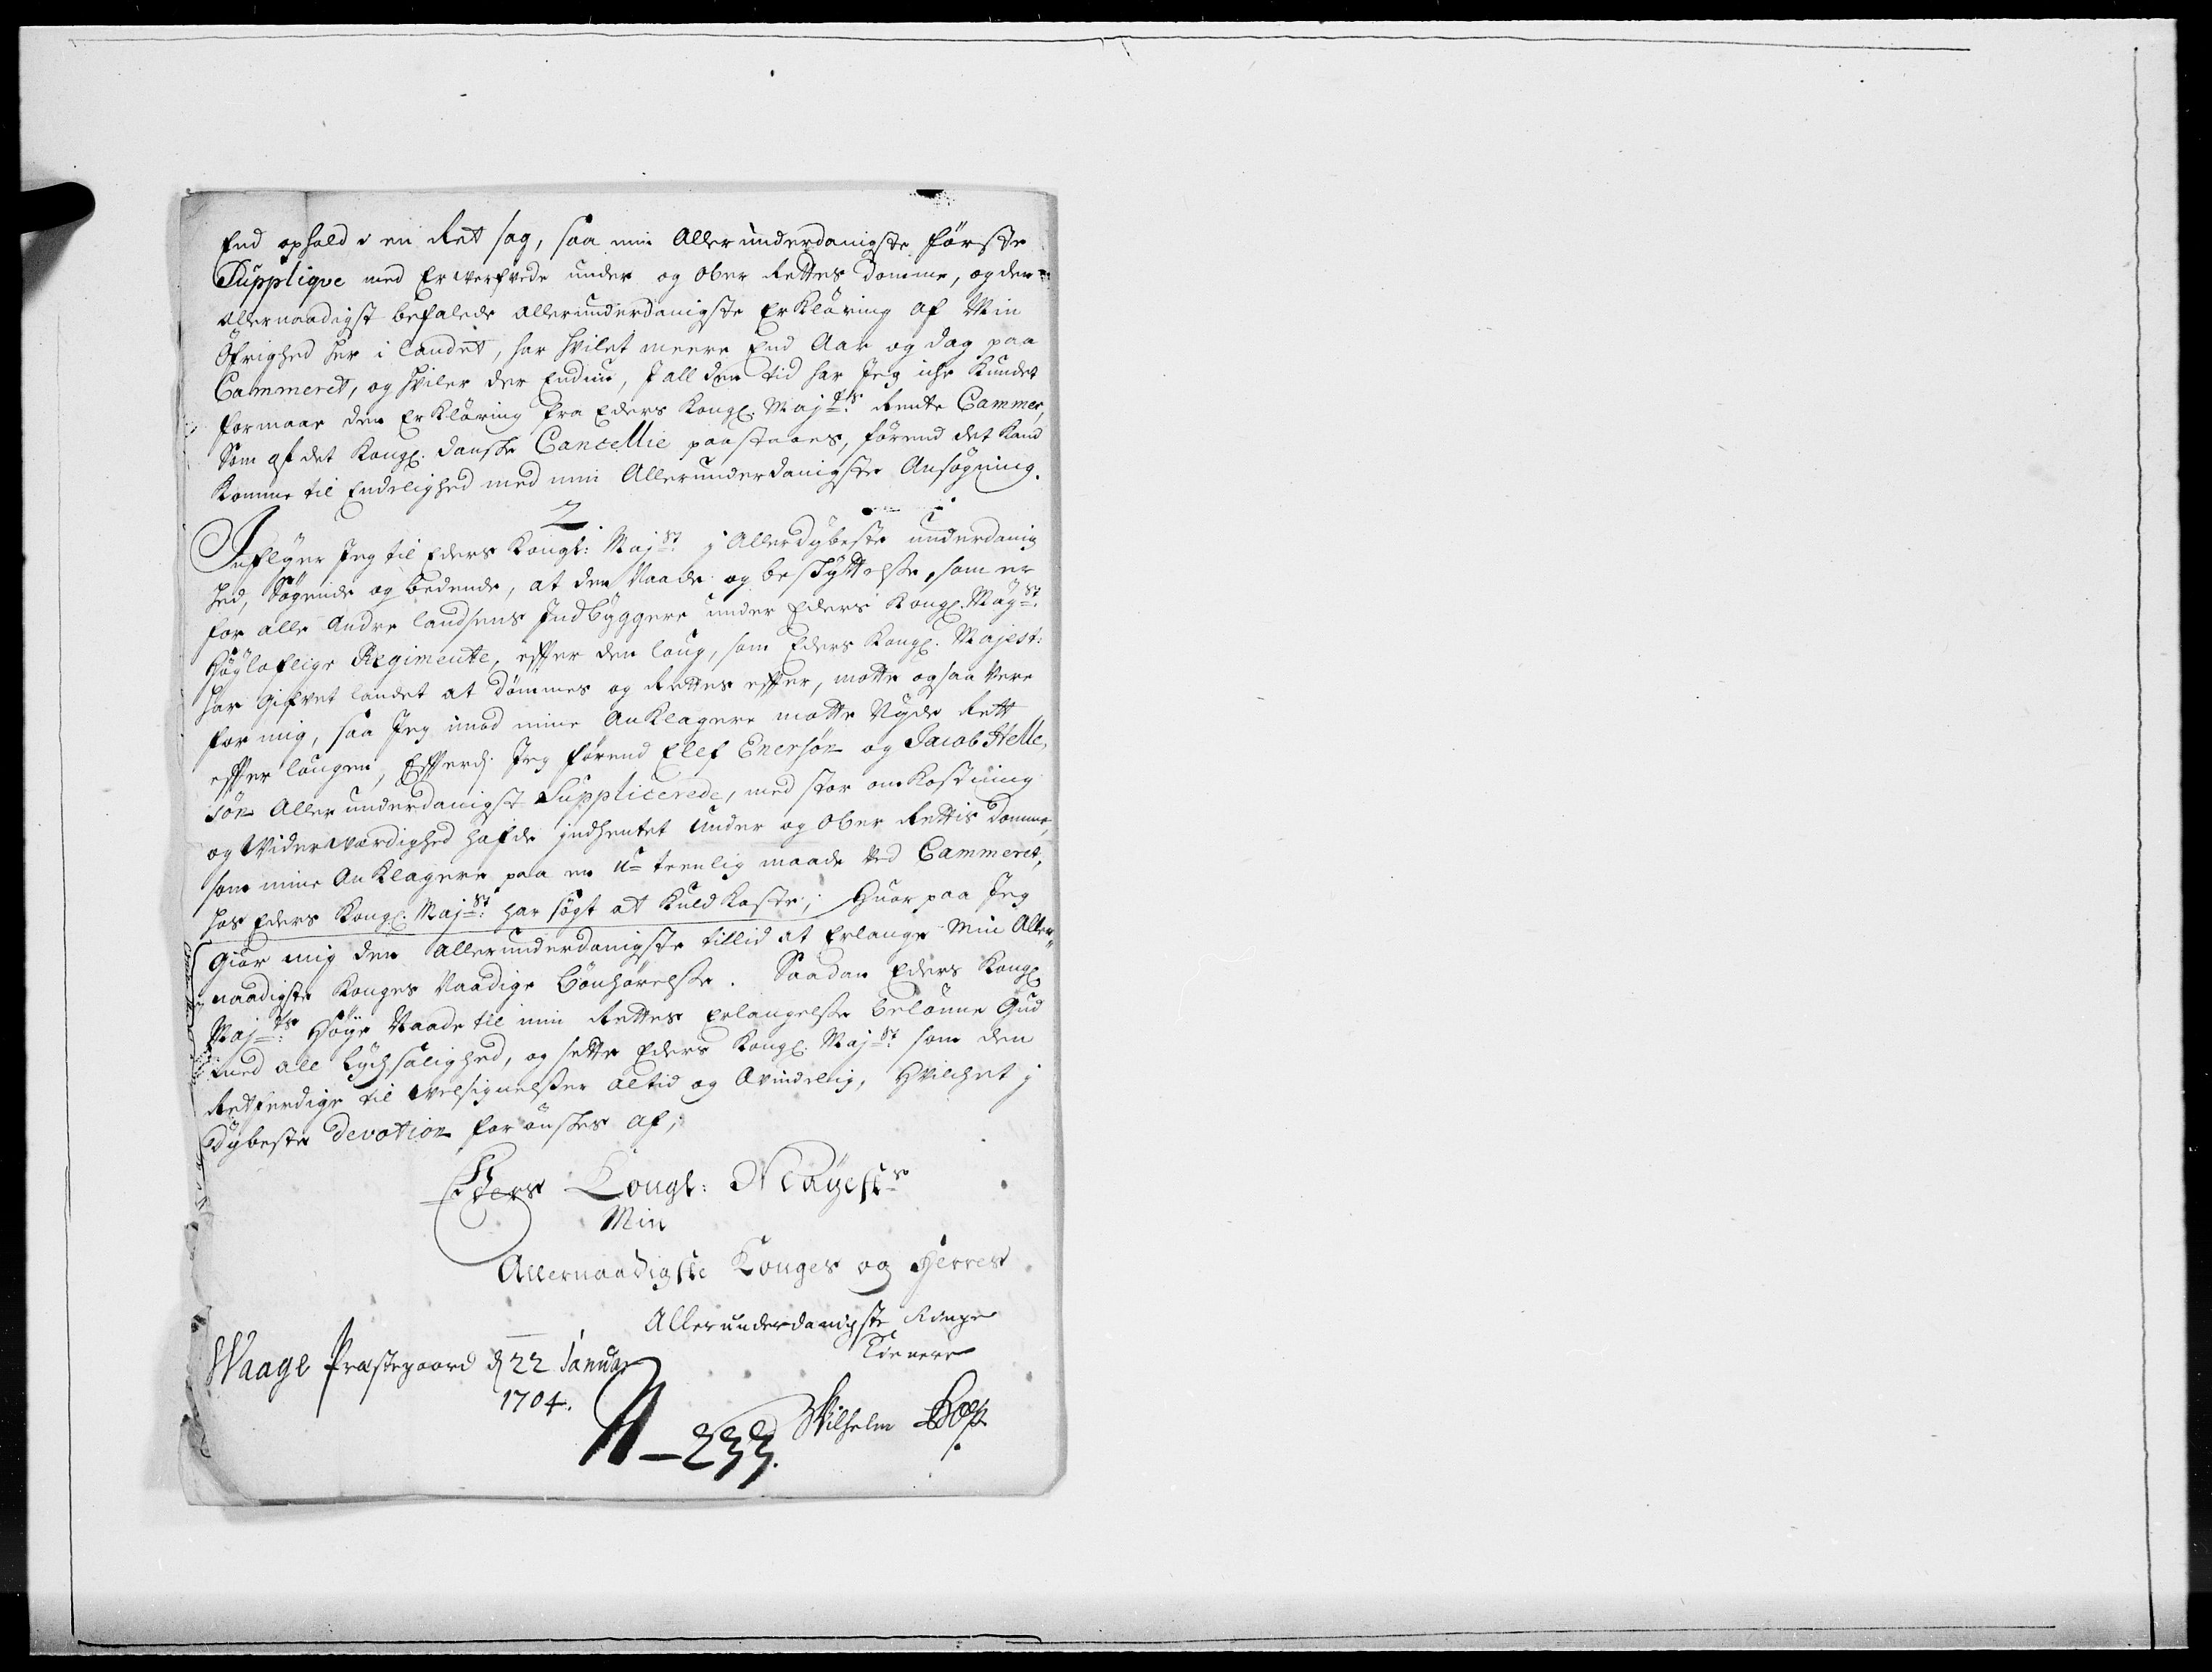 End ophold i en Ret sag, saa min Allerunderdanigste første
Supplique med Erwerfvede under og Ober Rettes Domme, og den
allernaadigst befalede allerunderdanigste Erklæring af Min
Öfrighed her i Landet, har hvilet meere End Aar og dag paa
Cammeret, og hviler der Endnu, J all den tid har Jeg iche Kundet
formaae den Erklæring fra Eders Kongl. Majts Rente Cammer,
Som af det Kongl. danske Cancellie paastaaes, förend det Kand
Komme til Endelighed med min Allerunderdanigste Ansögning.
2
Jnflyer Jeg til Eders Kongl: Majst j Allerdybeste underdanig
hed, Sögende og bedende, at den Naade og beskyttelse, som er
for alle Andre landsens Jndbyggere under Eders Kongl. Mayst
Höyloflige Regimente, effter den loug, som Eders Kongl. Majest:
har Gifvet landet at dömmes og Rettes effter, motte ogsaa Vere
for mig, saa Jeg imod mine Anklagere motte Nyde Rett
effter lougen, Effterdj Jeg förend Elef Enersøn og Jacob Helle,
søn Allerunderdanigst Supplicerede, med stor omkostning
og Widerwærdighed hafde jndhentet Under og Ober Rettis Domme,
som mine Anklagere paa en utrenlig maade ved Cammeret,
hos Eders Kongl. Majst: har sögt at Kuldkaste; Huorpaa Jeg
Giör mig den allerunderdanigste tillid at Erlange Min Aller,,
naadigste Konges Naadige Bönhörelse. Saadan Eders Kongl
Majts: Höye Naade til min Rettes Erlangelse belönne Gud
med all Lychsalighed, og sette Eders Kongl: Majst som den
Retferdige til Velsignelser altid og Ævindelig, Hvilchet j
dybeste Devotion forönskes af,
Eders Kongl: Mayests
Min
Allernaadigste Konges og Herres
Allerunderdanigste Ringe
Tienere
Waage Præstegaard d 22 Januar
1704.
Wilhelm
N-233.